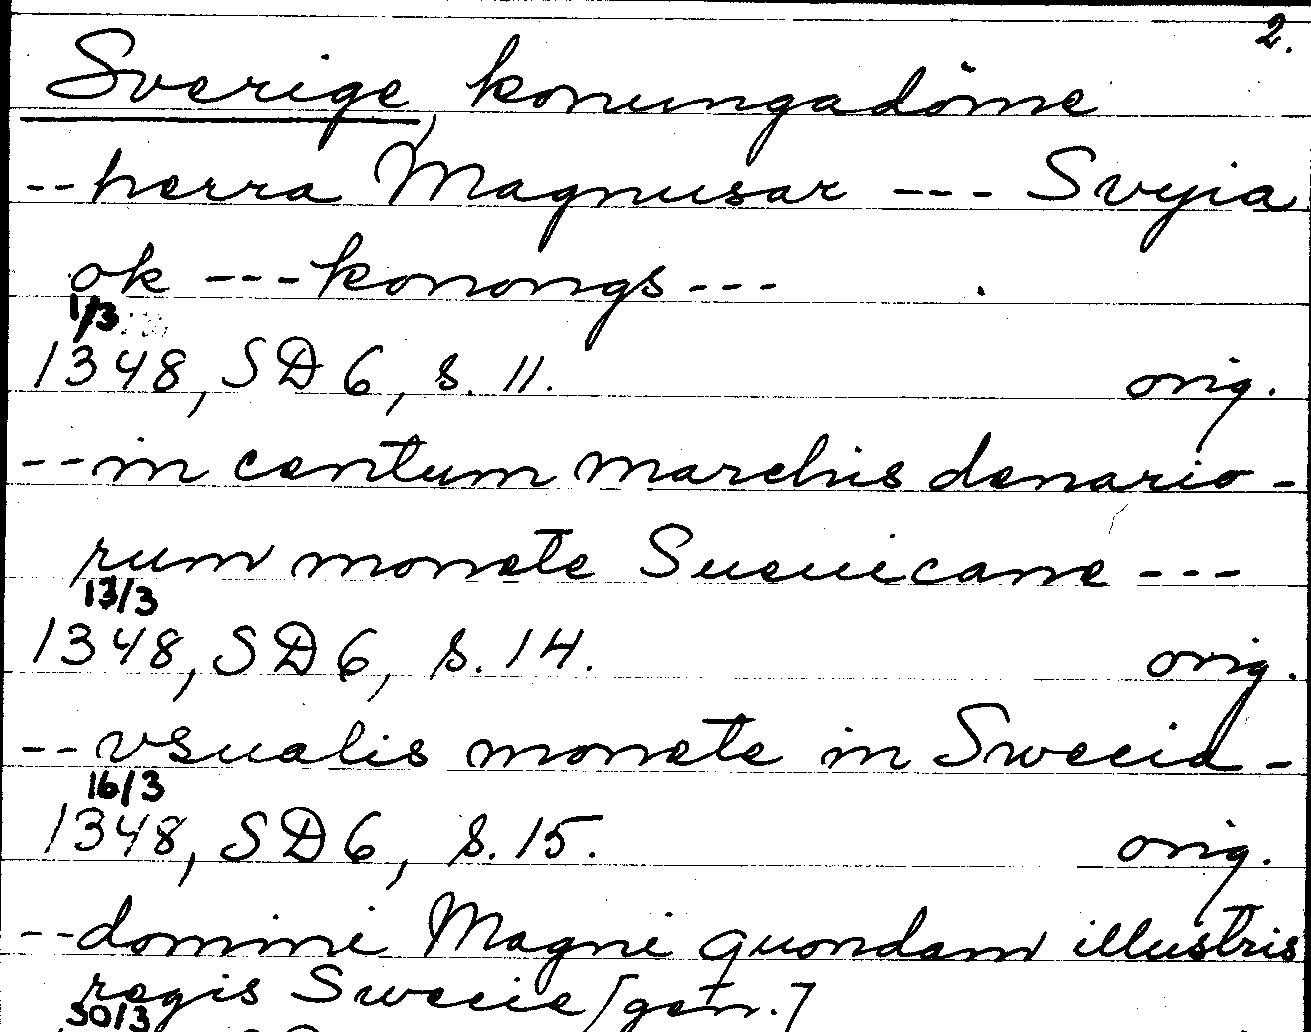 2.
Sverige, konungadöme
-- herra Magnusar --- Svyia
ok --- konongs ---
1/3
1348, SD 6, s. 11. orig.
-- in centum marchis denario-
rum monete Sueuicane ---
13/3
1348, SD 6, s. 14. orig.
-- vsualis monete in Swecia -
16/3
1348, SD 6, s. 15. orig.
-- domini Magni quondam illustris
regis Swecie [gen.]
30/3